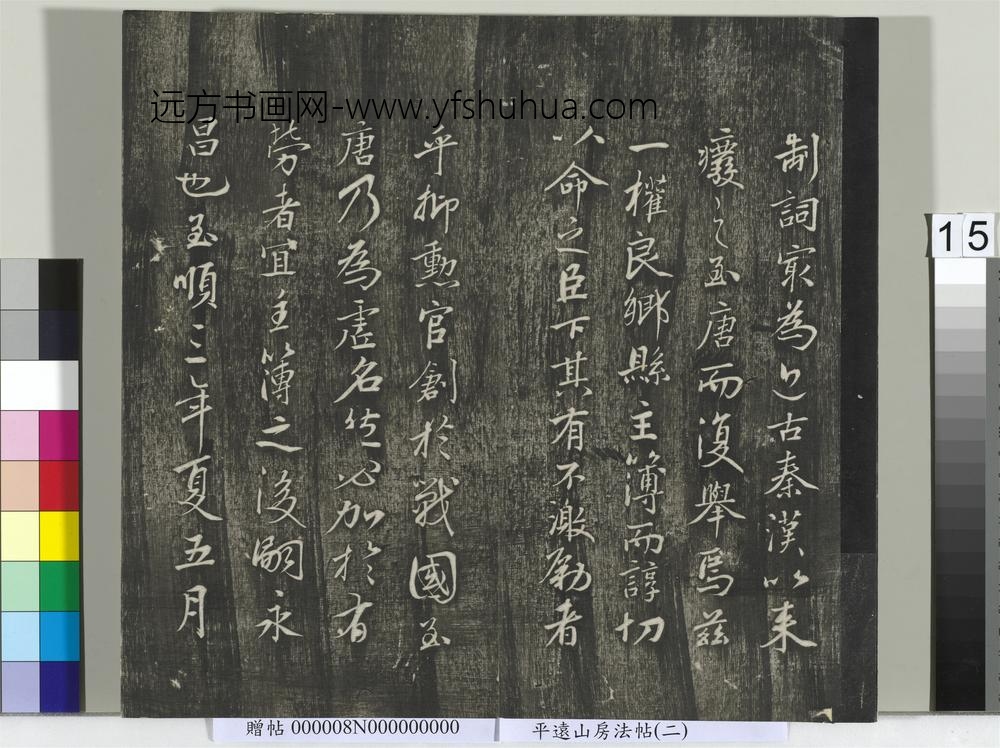 远方书画网-www.yfshuhua.com
制詞冣為近古秦漢以来
癈之至唐而復舉焉茲
一權良鄉縣主簿而諄切
以命之臣下其有不激勵者
乎抑勳官創於戰國至
唐乃為虛名然必加於有
勞者宜主簿之後嗣永
昌也至順三年夏五月
15
贈帖 000008N000000000
平遠山房法帖(二)